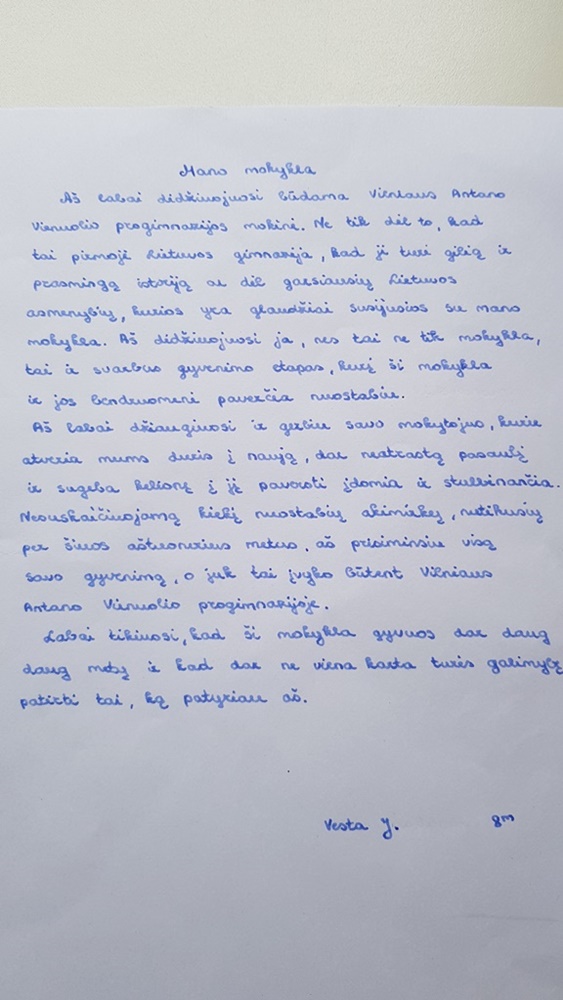 Mano mokykla
Aš labai didžiuojuosi būdama Vilniaus Antano
Vienuolio progimnazijos mokinė. Ne tik dėl to, kad
tai pirmoji Lietuvos gimnazija, kad ji turi gilią ir
prasmingą istoriją ar dėl garsiausių Lietuvos
asmenybių, kurios yra glaudžiai susijusios su mano
mokykla. Aš didžiuojuosi ja, nes tai ne tik mokykla,
tai ir svarbus gyvenimo etapas, kurį ši mokykla
ir jos bendruomenė paverčia nuostabiu.
Aš labai džiaugiuosi ir gerbiu savo mokytojus, kurie
atveria mums duris į naują, dar neatrastą pasaulį
ir sugeba kelionę į jį paversti įdomia ir stulbinančia.
Nesuskaičiuojamą kiekį nuostabių akimirkų, nutikusių
per šiuos aštuonerius metus, aš prisiminsiu visą
savo gyvenimą, o juk tai įvyko būtent Vilniaus
Antano Vienuolio progimnazijoje.
Labai tikiuosi, kad ši mokykla gyvuos dar daug
daug metų ir kad dar ne viena karta turės galimybę
patirti tai, ką patyriau aš.
Vesta J. 8m